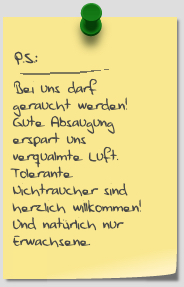 P.S.:
Bei uns darf
geraucht werden!
Gute Absaugung
erspart uns
verqualmte Luft.
Tolerante
Nichtraucher sind
herzlich willkommen!
Und natürlich nur
Erwachsene.